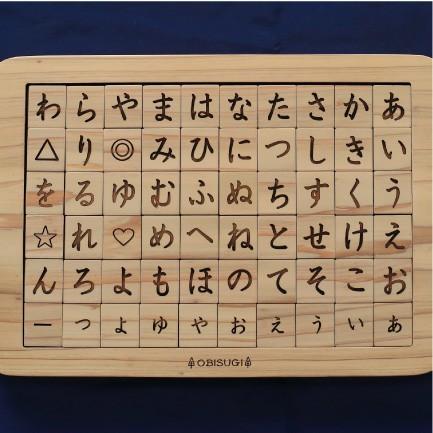 わ ら や ま は な た さ か あ
△ り ◎ み ひ に つ し き い
を る ゆ む ふ ぬ ち す く う
☆ れ ♡ め へ ね と せ け え
ん ろ よ も ほ の て そ こ お
ー っ ょ ゅ ゃ ぉ ぇ ぅ ぃ ぁ
OBISUGI